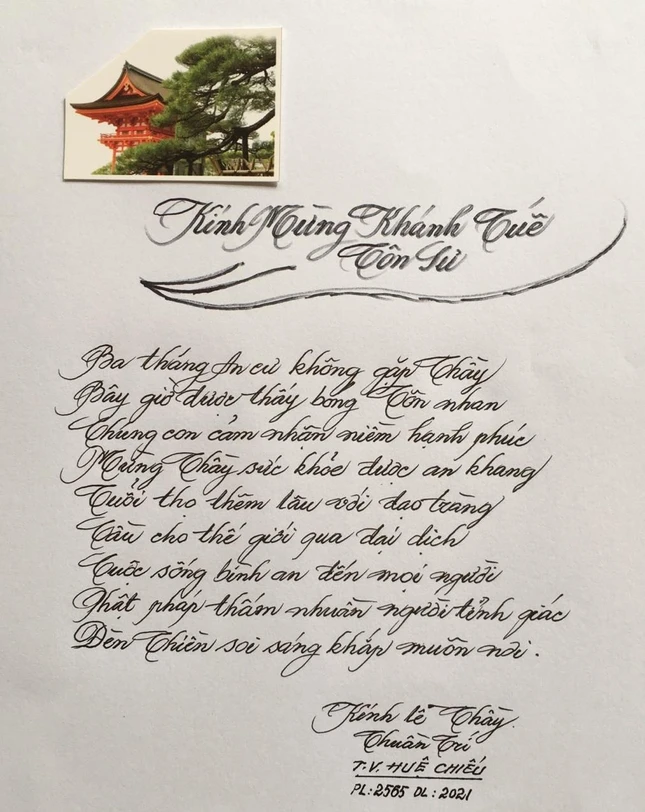 Kính Mừng Khánh Tuế
Tôn Sư
Ba tháng An cư không gặp Thầy
Bây giờ được thấy bóng Tôn nhan
Chúng con cảm nhận niềm hạnh phúc
Mừng Thầy sức khỏe được an khang
Tuổi thọ thêm lâu với đạo tràng
Cầu cho thế giới qua đại dịch
Cuộc sống bình an đến mọi người
Phật pháp thấm nhuần người tỉnh giác
Đèn Thiền soi sáng khắp muôn nơi.
Kính lễ Thầy.
Thuần Trí
T.V. HUỆ CHIẾU
PL: 2565 DL: 2021